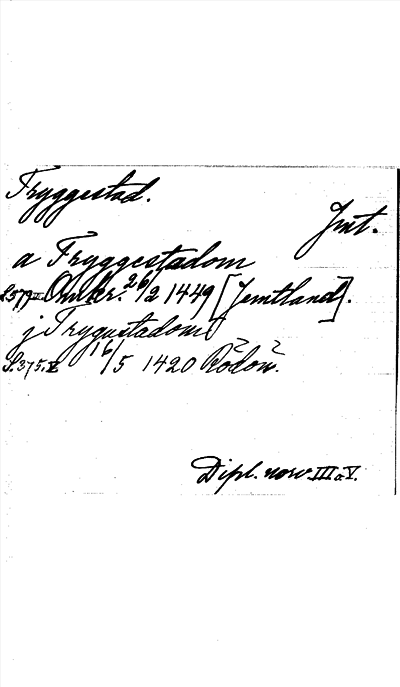 Tryggestad.
Jmt.
a Tryggestadom
S. 579 III Omkr. 26/2 1449 [Jemtland].
j Trygustadom
S. 375. V. 16/5 1420 Rödön.
Dipl. norv. III o. V.